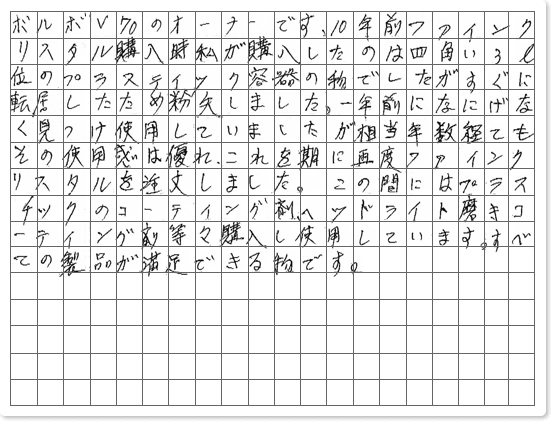 ボルボV70のオーナーです。10年前ファインク
リスタル購入時私が購入したのは四角い3ℓ
位のプラスティック容器の物でしたがすぐに
転居したため紛失しました。一年前になにげな
く見つけ使用していましたが相当年数経ても
その使用感は優れ、これを期に再度ファインク
リスタルを注文しました。この間にはプラス
チックのコーティング剤、ヘッドライト磨きコ
ーティング剤等々購入し使用しています。すべ
ての製品が満足できる物です。